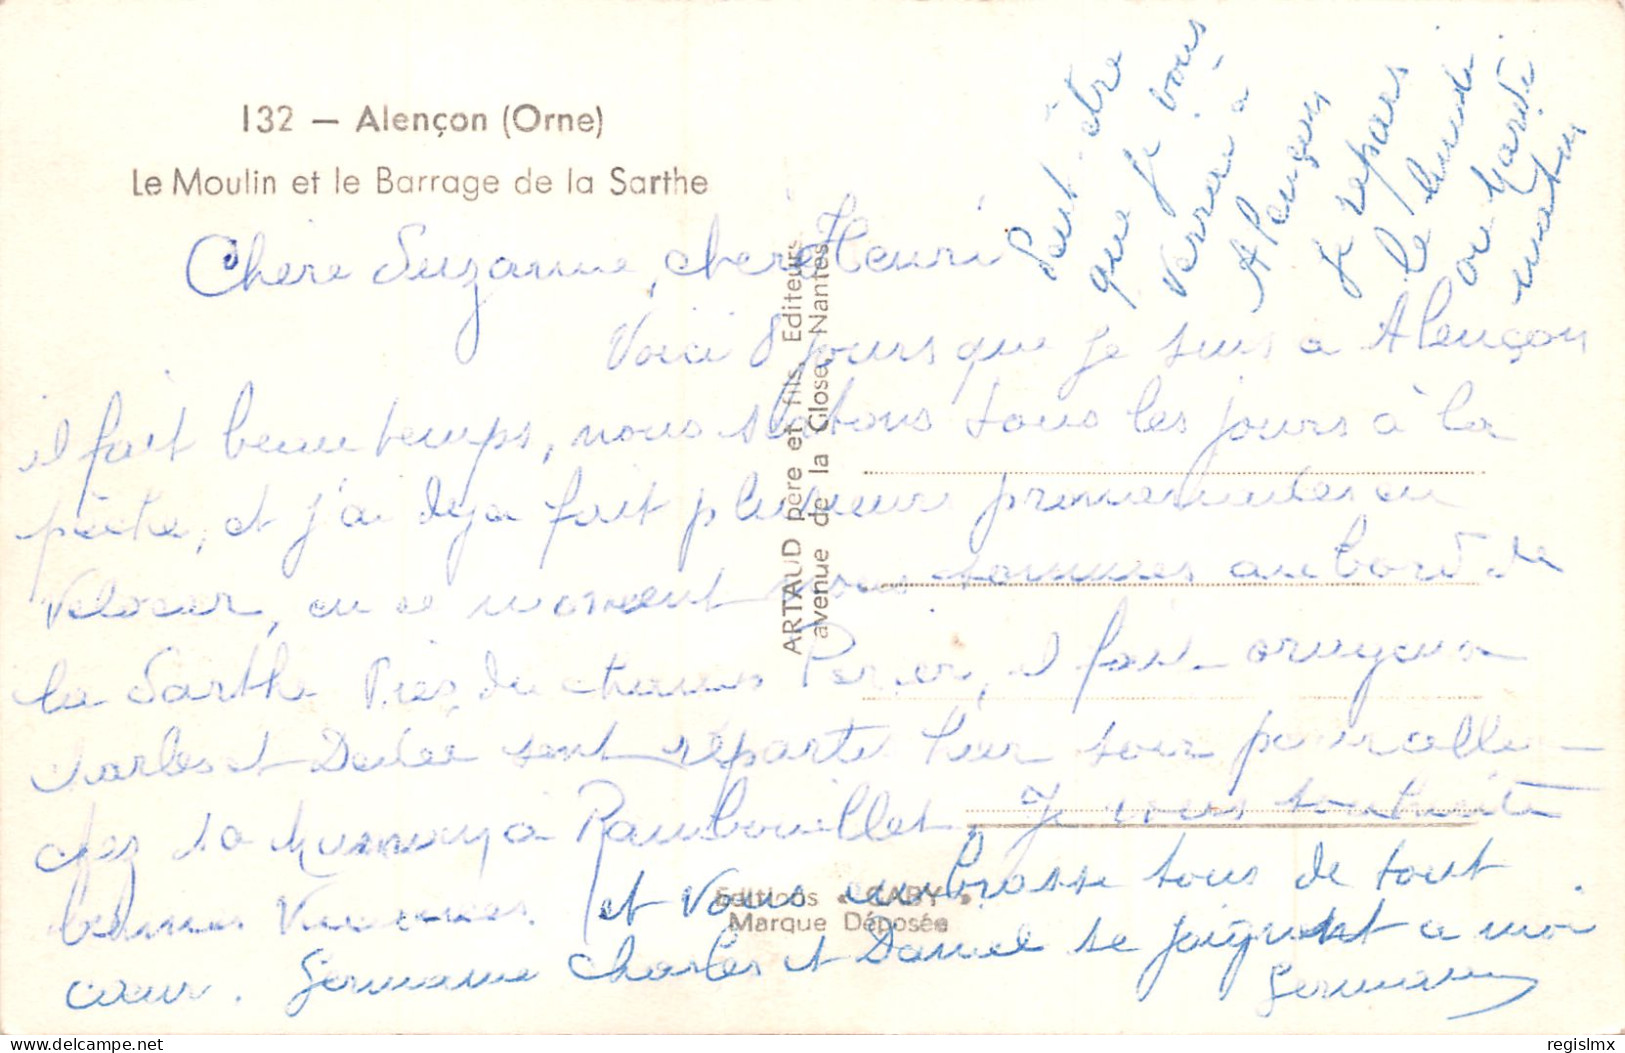 132 — Alençon (Orne)
Le Moulin et le Barrage de la Sarthe
Peut-être
que je vous
verrai à
Alençon
je repars
le lundi
ou Mardi
matin
Chère Suzanne, cher Henri
Voici 8 jours que je suis a Alençon
il fait beau temps, nous allons tous les jours à la
pêche, et j'ai deja fait plusieur promenades en
Veloceur, en ce moment nous sommes au bord de
la Sarthe Près du chemin Perier, il fait orageux
charles et Dedée sont répartis hier soir pour aller
chez sa à Rambouillet, Je vous souhaite
bonnes Vacances. et Vous embrasse tous de tout
cœur. Germaine Charles et Daniel se joignent a moi.
Germaine
ARTAUD père et fils, Editeurs
avenue de la Close, Nantes
Editions « GABY »
Marque Déposée
delcampe.net
regislmx